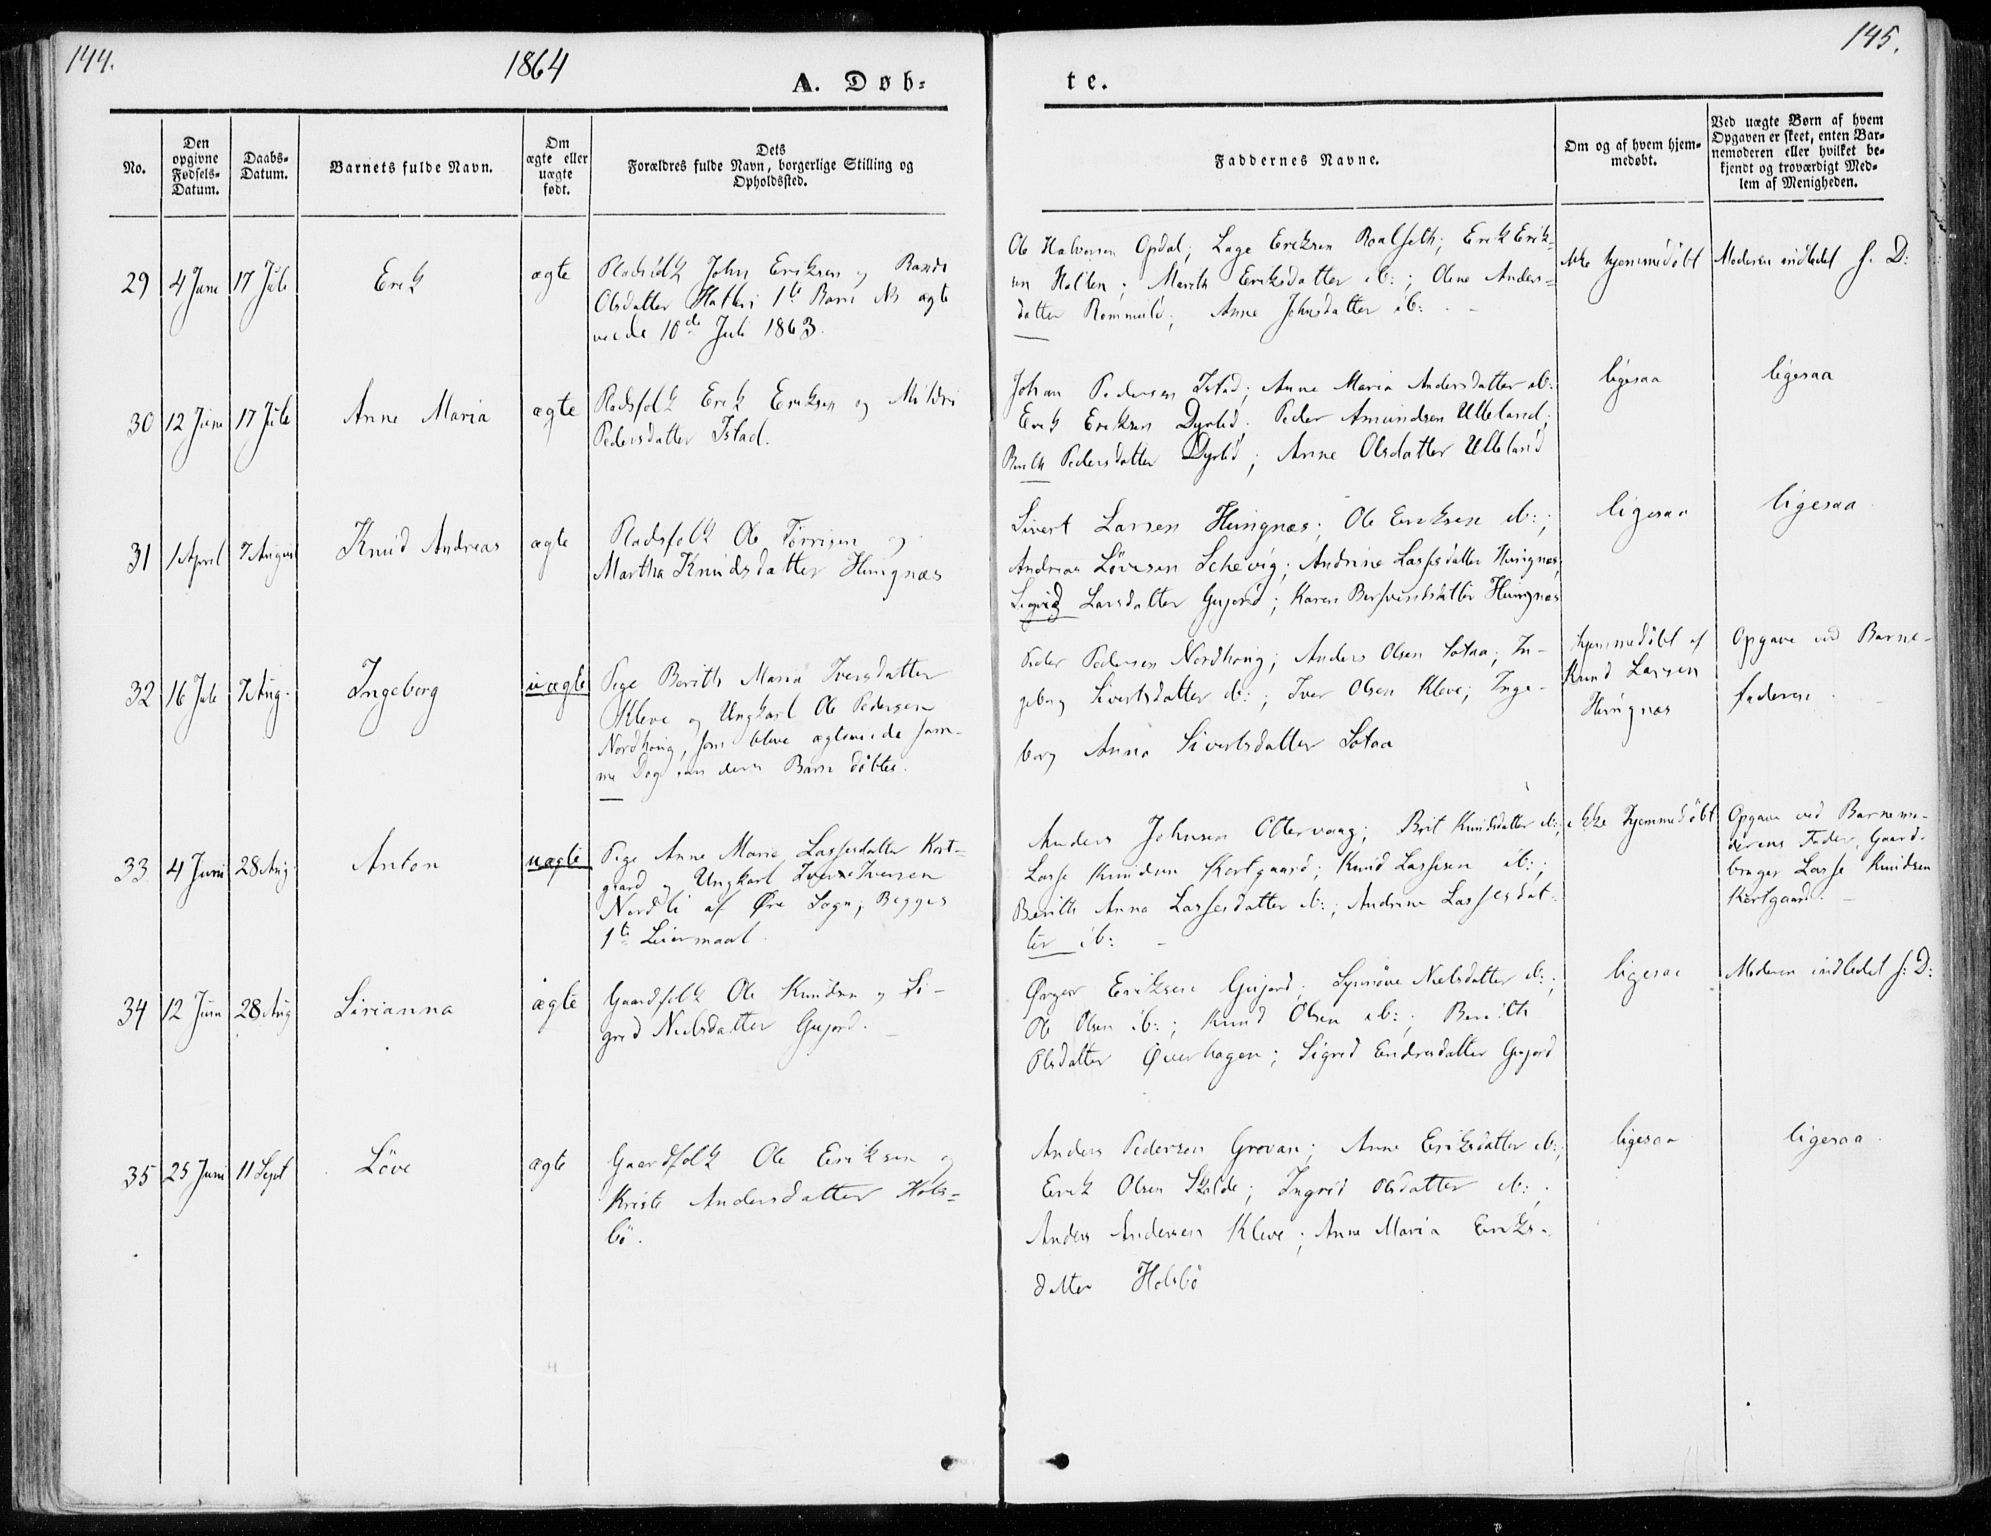 144.
1864
A. Døb-
No.
Den
opgivne
Fødsels-
Datum.
Daabs-
Datum.
Barnets fulde Navn.
Om
ægte eller
uægte
født.
Dets
Forældres fulde Navn, borgerlige Stilling og
Opholdssted.
29 4 Juni 17 Juli Erik ægte Pladsfolk John Eriksen og Randi
Olsdatter Hatlen 1te Barn NB ægte
viede 10de Juli 1863.
30 12 Juni 17 Juli Anne Maria ægte Pladsfolk Erik Eriksen og Mildri
Pedersdatter Istad.
31 1 April 7 August Knud Andreas ægte Pladsfolk Ole Tørrisen og
Martha Knudsdatter Hungnæs
32 16 Juli 7 Aug. Ingeborg uægte Pige Berith Maria Iversdatter
Kleve og Ungkarl Ole Pedersen
Nordhoug, som bleve ægteviede sam-
me Dag som deres Barn döbtes.
33 4 Juni 28 Aug Anton uægte Pige Anne Marie Lassesdatter Kort-
gaard og Ungkarl Iver Iversen
Nordli af Øre Sogn; Begges
1te Leiermaal.
34 12 Juni 28 Aug Sirianna ægte Gaardfolk Ole Knudsen og Si-
grid Nielsdatter Gujord.
35 25 Juni 11 Sept Löve ægte Gaardfolk Ole Eriksen og
Kristi Andersdatter Hols-
bö.
145.
te.
Faddernes Navne.
Om og af hvem hjem-
medøbt.
Ved uægte Børn af hvem
Opgaven er skeet, enten Bar-
nemoderen eller hvilket be-
kjendt og troværdigt Med-
lem af Menigheden.
Ole Halvorsen Opdal; Lage Eriksen Roalseth; Erik Erik- ikke hjemmedöbt Moderen indledet s. D:
sen Hatlen; Marith Eriksdatter ib:; Olene Anders-
datter Rommuld; Anne Johnsdatter ib:
Johan Pedersen Istad; Anne Maria Andersdatter ib: ligesaa ligesaa
Erik Eriksen Dyrlid; Peder Amundsen Ulleland;
Berith Pedersdatter Dyrlid; Anne Olsdatter Ulleland
Sivert Larsen Hungnæs; Ole Eriksen ib:; ligesaa ligesaa
Andreas Lövesen Schevig; Andrine Lassesdatter Hungnæs;
Sigrid Larsdatter Gujord; Karen Hungnæs
Peder Pedersen Nordhoug; Anders Olsen Sotaa; In- hjemmedöbt af Opgave ved Barne-
geborg Sivertsdatter ib:; Iver Olsen Kleve; Inge- Knud Larsen faderen
borg Anna Sivertsdatter Sotaa Hungnæs
Anders Johnsen Ottervaag; Brit Knudsdatter ib:; ikke hjemmedöbt Opgave ved Barnemo-
Lasse Knudsen Kortgaard; Knud Lassesen ib:; derens Fader, Gaard-
Berith Anna Lassesdatter ib:; Andrine Lassesdat- bruger Lasse Knudsen
ter ib: Kortgaard.
Ørger Eriksen Gujord; Synnöve Nielsdatter ib:; ligesaa Moderen indledet s: D:
Ole Olsen ib:; Knud Olsen ib:; Berith
Olsdatter Øverhagen; Sigrid Endresdatter Gujord
Anders Pedersen Grovan; Anne Eriksdatter ib:; ligesaa ligesaa
Erik Olsen Skolde; Ingrid Olsdatter ib:;
Anders Andersen Kleve; Anne Maria Eriks-
datter Holsbö